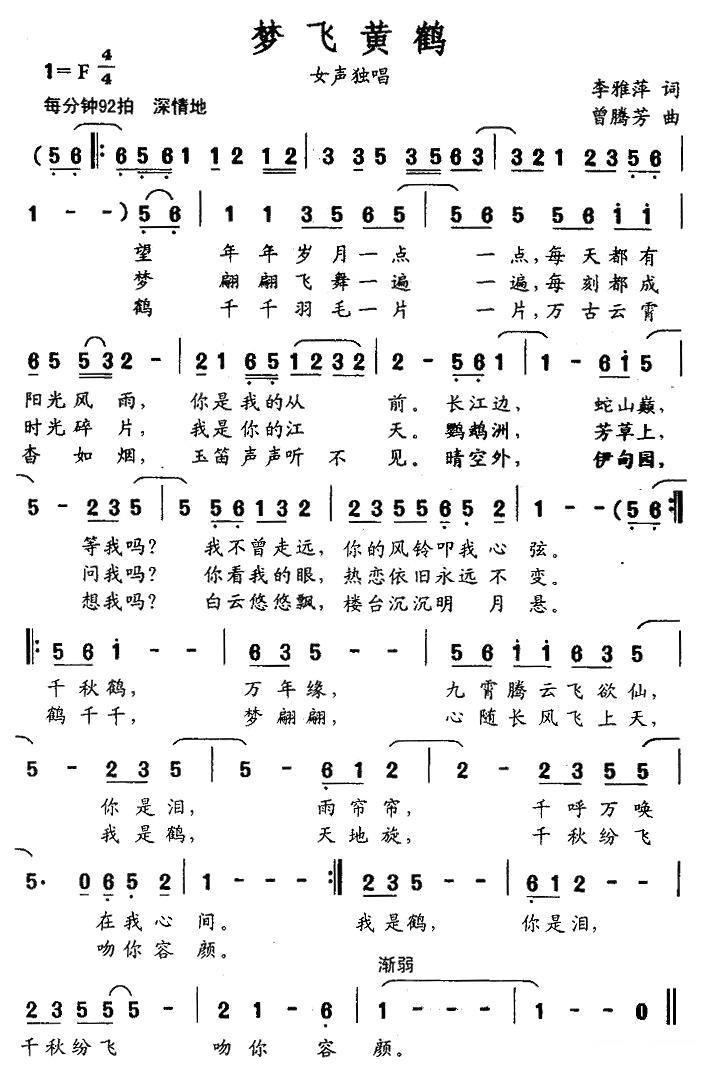 梦飞黄鹤
1=F 4/4
女声独唱
李雅萍 词
每分钟92拍 深情地
曾腾芳 曲
(5 6 ‖: 6 5 6 1 1 2 1 2 | 3 3 5 3 5 6 3 | 3 2 1 2 3 5 6 |
1 - - ) 5 6 | 1 1 3 5 6 5 | 5 5 6 i i |
望 年 年 岁 月 一 点 一 点, 每 天 都 有
梦 翩 翩 飞 舞 一 遍 一 遍, 每 刻 都 成
鹤 千 千 羽 毛 一 片 一 片, 万 古 云 霄
6 5 5 3 2 - | 2 1 6 5 1 2 3 2 | 2 - 5 6 1 | 1 - 6 i 5 |
阳光 风 雨, 你是我的从 前。 长江边, 蛇山巅,
时光 碎 片, 我是你的江 天。 鹦鹉洲, 芳草上,
杳 如 烟, 玉笛声声听 不 见。 晴空外, 伊甸园,
5 - 2 3 5 | 5 5 6 1 3 2 | 2 3 5 5 6 5 2 | 1 - - (5 6 :‖
等我吗? 我不曾走远, 你的风铃叩我 心 弦。
问我吗? 你看我的眼, 热恋依旧永远 不 变。
想我吗? 白云悠悠飘, 楼台沉沉明 月 悬。
‖: 5 6 i - - | 6 3 5 - - | 5 6 i i 6 3 5 |
千秋鹤, 万年缘, 九霄腾云飞欲仙,
鹤千千, 梦翩翩, 心随长风飞上天,
5 - 2 3 5 | 5 - 6 1 2 | 2 - 2 3 5 5 |
你是泪, 雨帘帘, 千呼万唤
我是鹤, 天地旋, 千秋纷飞
5· 0 6 5 2 | 1 - - - :‖ 2 3 5 - - | 6 1 2 - - |
在我心 间。 我是鹤, 你是泪,
吻你容 颜。
渐弱
2 3 5 5 5 - | 2 1 - 6 | 1 - - - | 1 - - 0 ‖
千秋纷飞 吻你 容 颜。